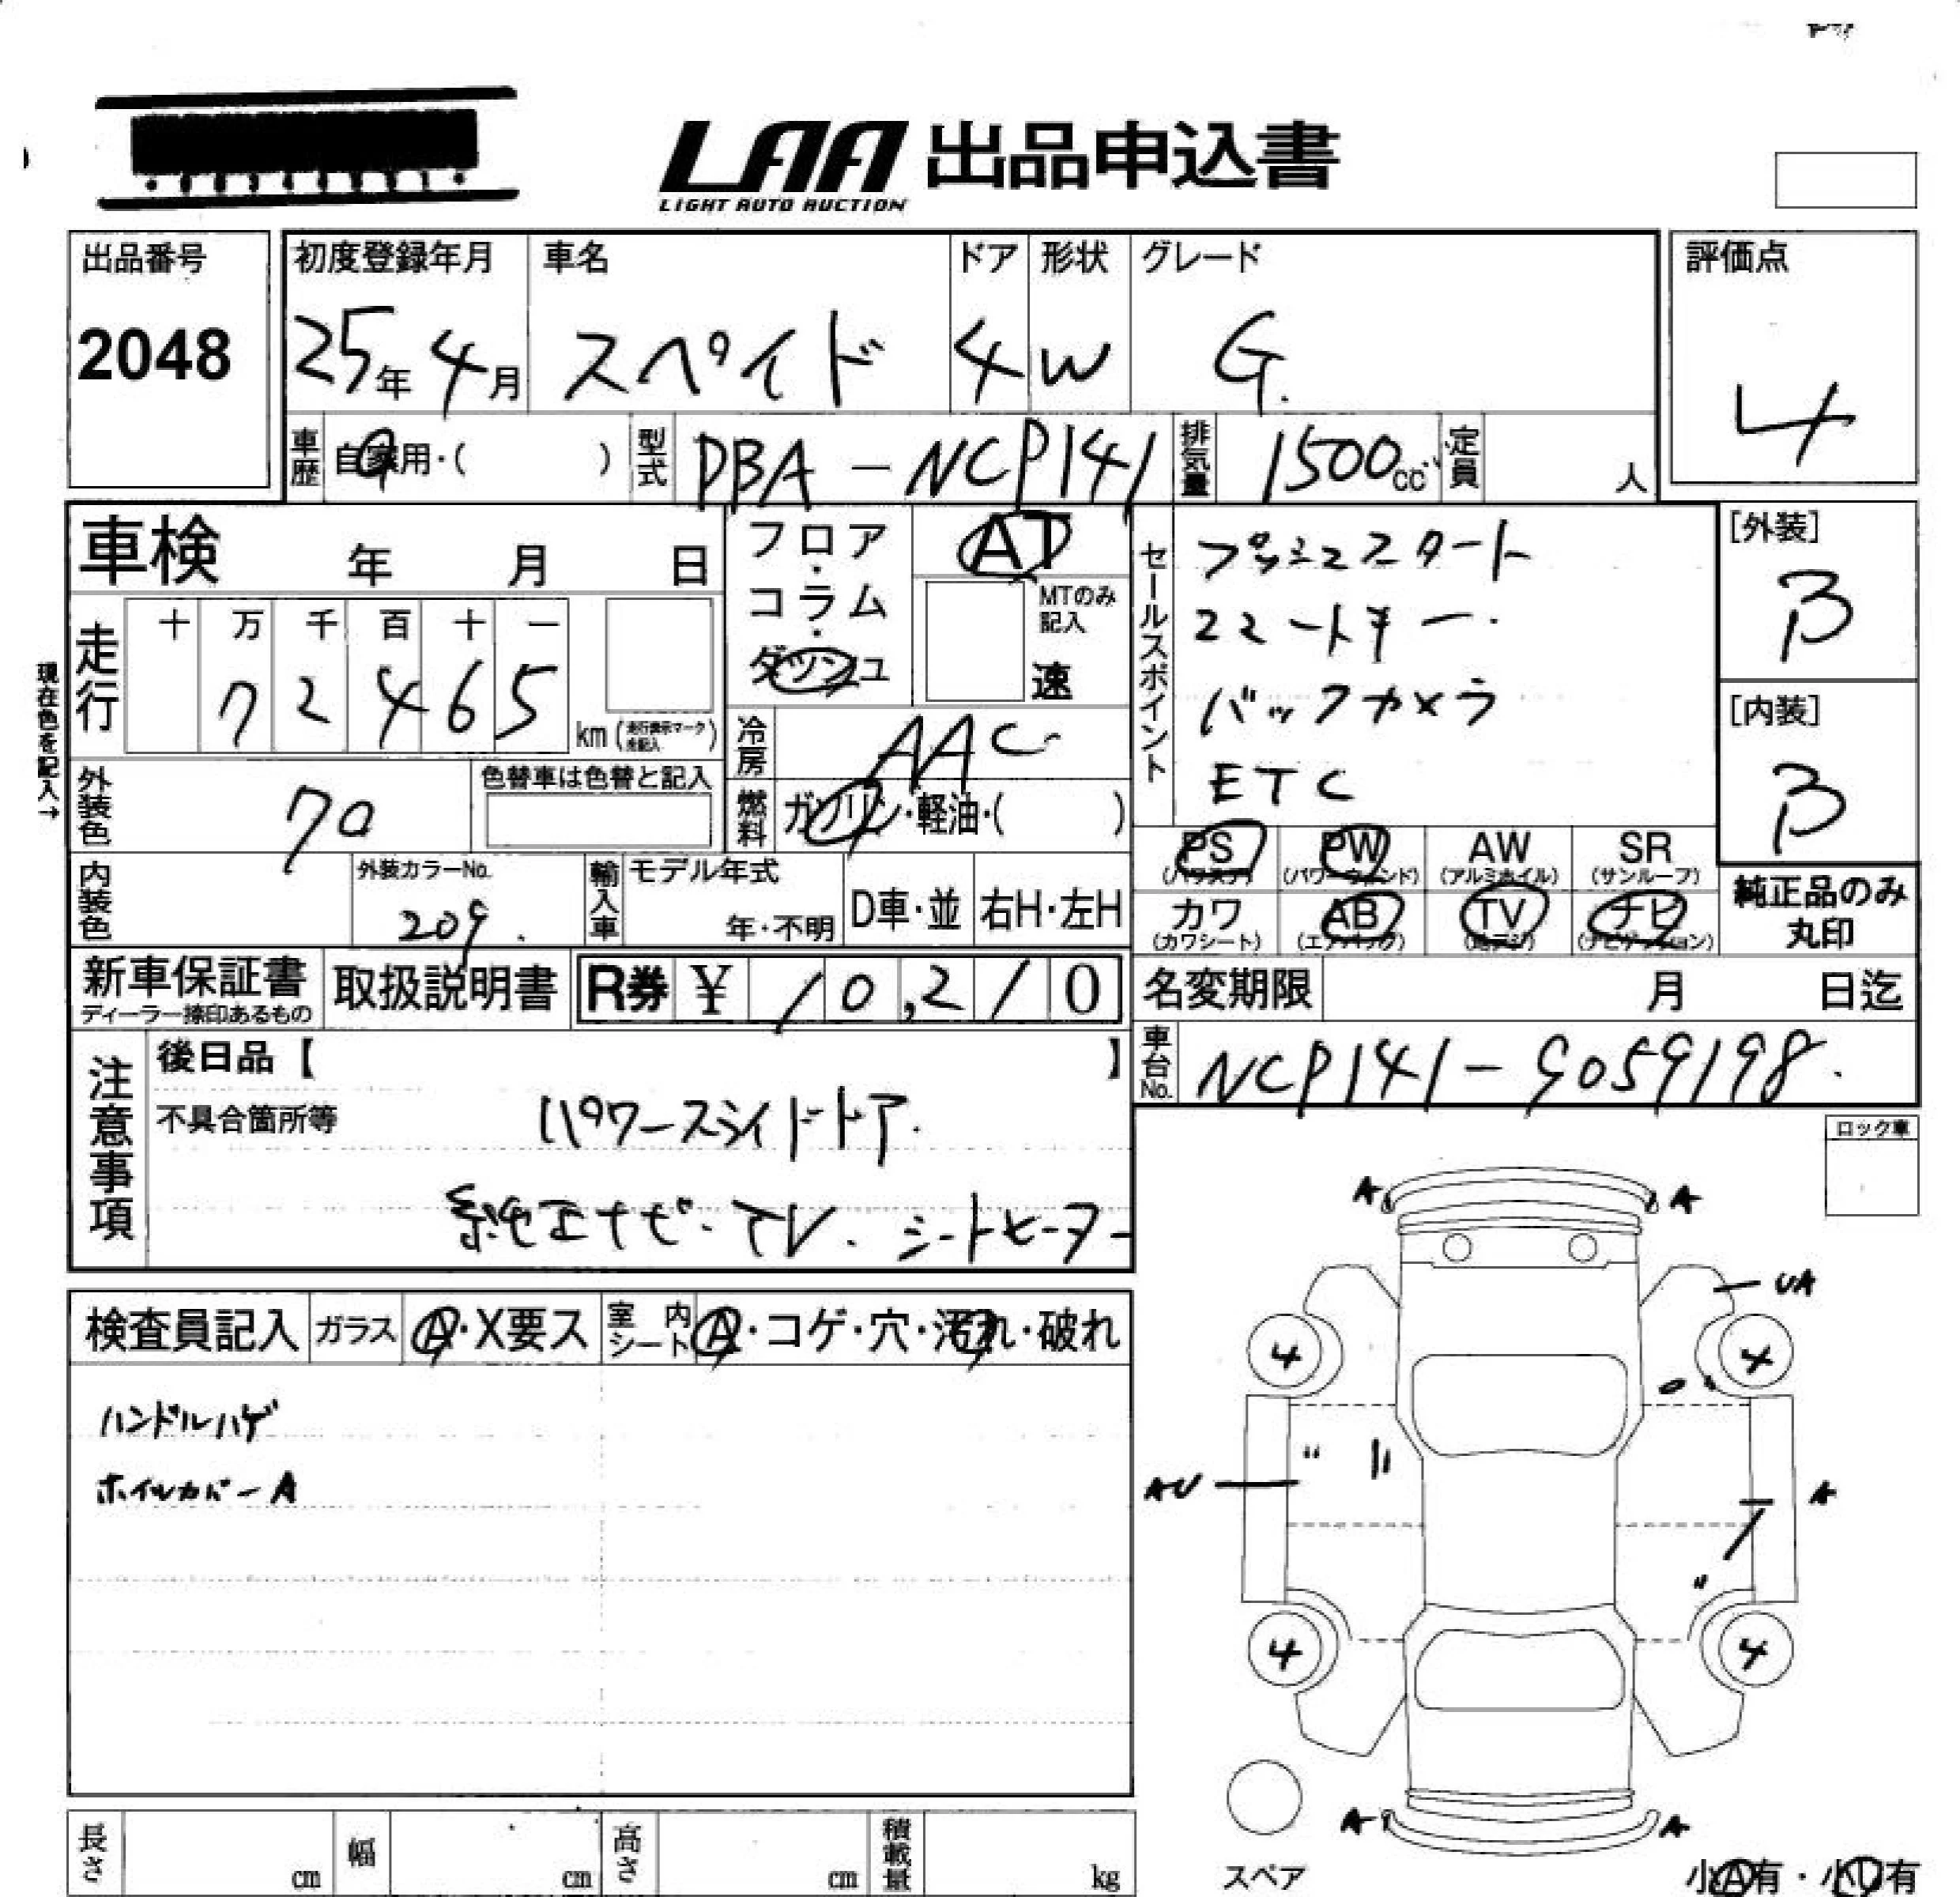 LAA 出品申込書
LIGHT AUTO AUCTION
出品番号
2048
初度登録年月
25年 4月
車名
スペイド
ドア
4
形状
W
グレード
G.
評価点
4
車歴
自家用・( )
型式
DBA-NCP141
排気量
1500cc
定員
人
車検 年 月 日
フロア・コラム・ダッシュ
AT
MTのみ記入
速
セールスポイント
プッシュスタート
スマートキー.
バックカメラ
ETC
[外装]
B
[内装]
B
現在色を記入→
走行
十 万 千 百 十 一
7 2 4 6 5
km(走行表示マーク未記入)
冷房
AAC
外装色
クロ
色替車は色替と記入
燃料
ガソリン・軽油・( )
内装色
外装カラーNo.
209.
輸入車
モデル年式
年・不明
D車・並
右H・左H
PS
(パワステ)
PW
(パワーウィンド)
AW
(アルミホイル)
SR
(サンルーフ)
カワ
(カワシート)
AB
(エアバック)
TV
(地デジ)
ナビ
(ナビゲーション)
純正品のみ
丸印
新車保証書
ディーラー捺印あるもの
取扱説明書
R券 ¥ 10,210
名変期限 月 日迄
車台No.
NCP141-9059198.
注意事項
後日品【 】
不具合箇所等
パワースライドドア.
純正ナビ・TV. シートヒーター
ロック車
検査員記入
ガラス
A・X要ス
室内シート
A・コゲ・穴・汚れ・破れ
ハンドルハゲ
ホイルカバーA
A A
UA
4 4
AU
A
4 4
A A
スペア
小A有・小U有
長さ cm
幅 cm
高さ cm
積載量 kg